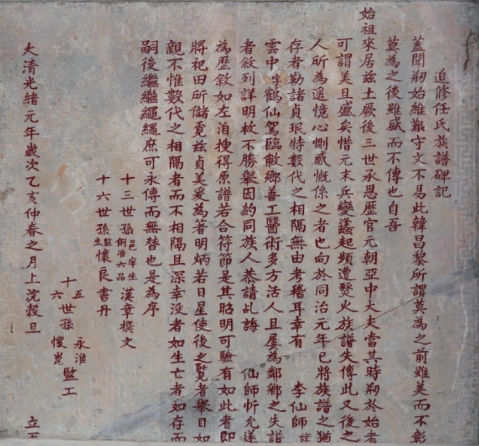 追修任氏族譜碑記
蓋聞刱始維艱守文不易此韓昌黎所謂莫為之前雖美而不彰
莫為之後雖盛而不傳也自吾
始祖來居兹土厥後三世承恩歷官元朝亞中大夫當其時刱於始者
可謂美且盛矣惜元末兵變蠭起頻遭燹火族譜失傳此又後之
人所為遥憶心惻感慨係之者也向於同治元年已將族譜之猶
存者勒諸貞珉特數代之相隔無由考稽耳幸有 李仙師
雲中鶴仙駕臨敝鄉善工醫術多方活人且屢為鄰鄉之失譜
者敘列詳明枚不勝舉因約同族人恭請此誨 仙師忻允遂
為歷敘如左洎搜得原譜若合符節是其昭明可驗有如此者即
將祀田所儲竟兹貞美爰為者明炳若日星使後之覽者舉目如
親不惟數代之相隔者而不相隔且深幸没者如生亡者如存而
嗣後繼繼繩繩庶可永傳而無替也是為序
十三世孫邑庠生例准六品漢章撰文
十六世孫監生懷良書丹
十五世孫永淮
十六世孫懷嵬監工
大清光緒元年歲次乙亥仲春之月上浣穀旦 立